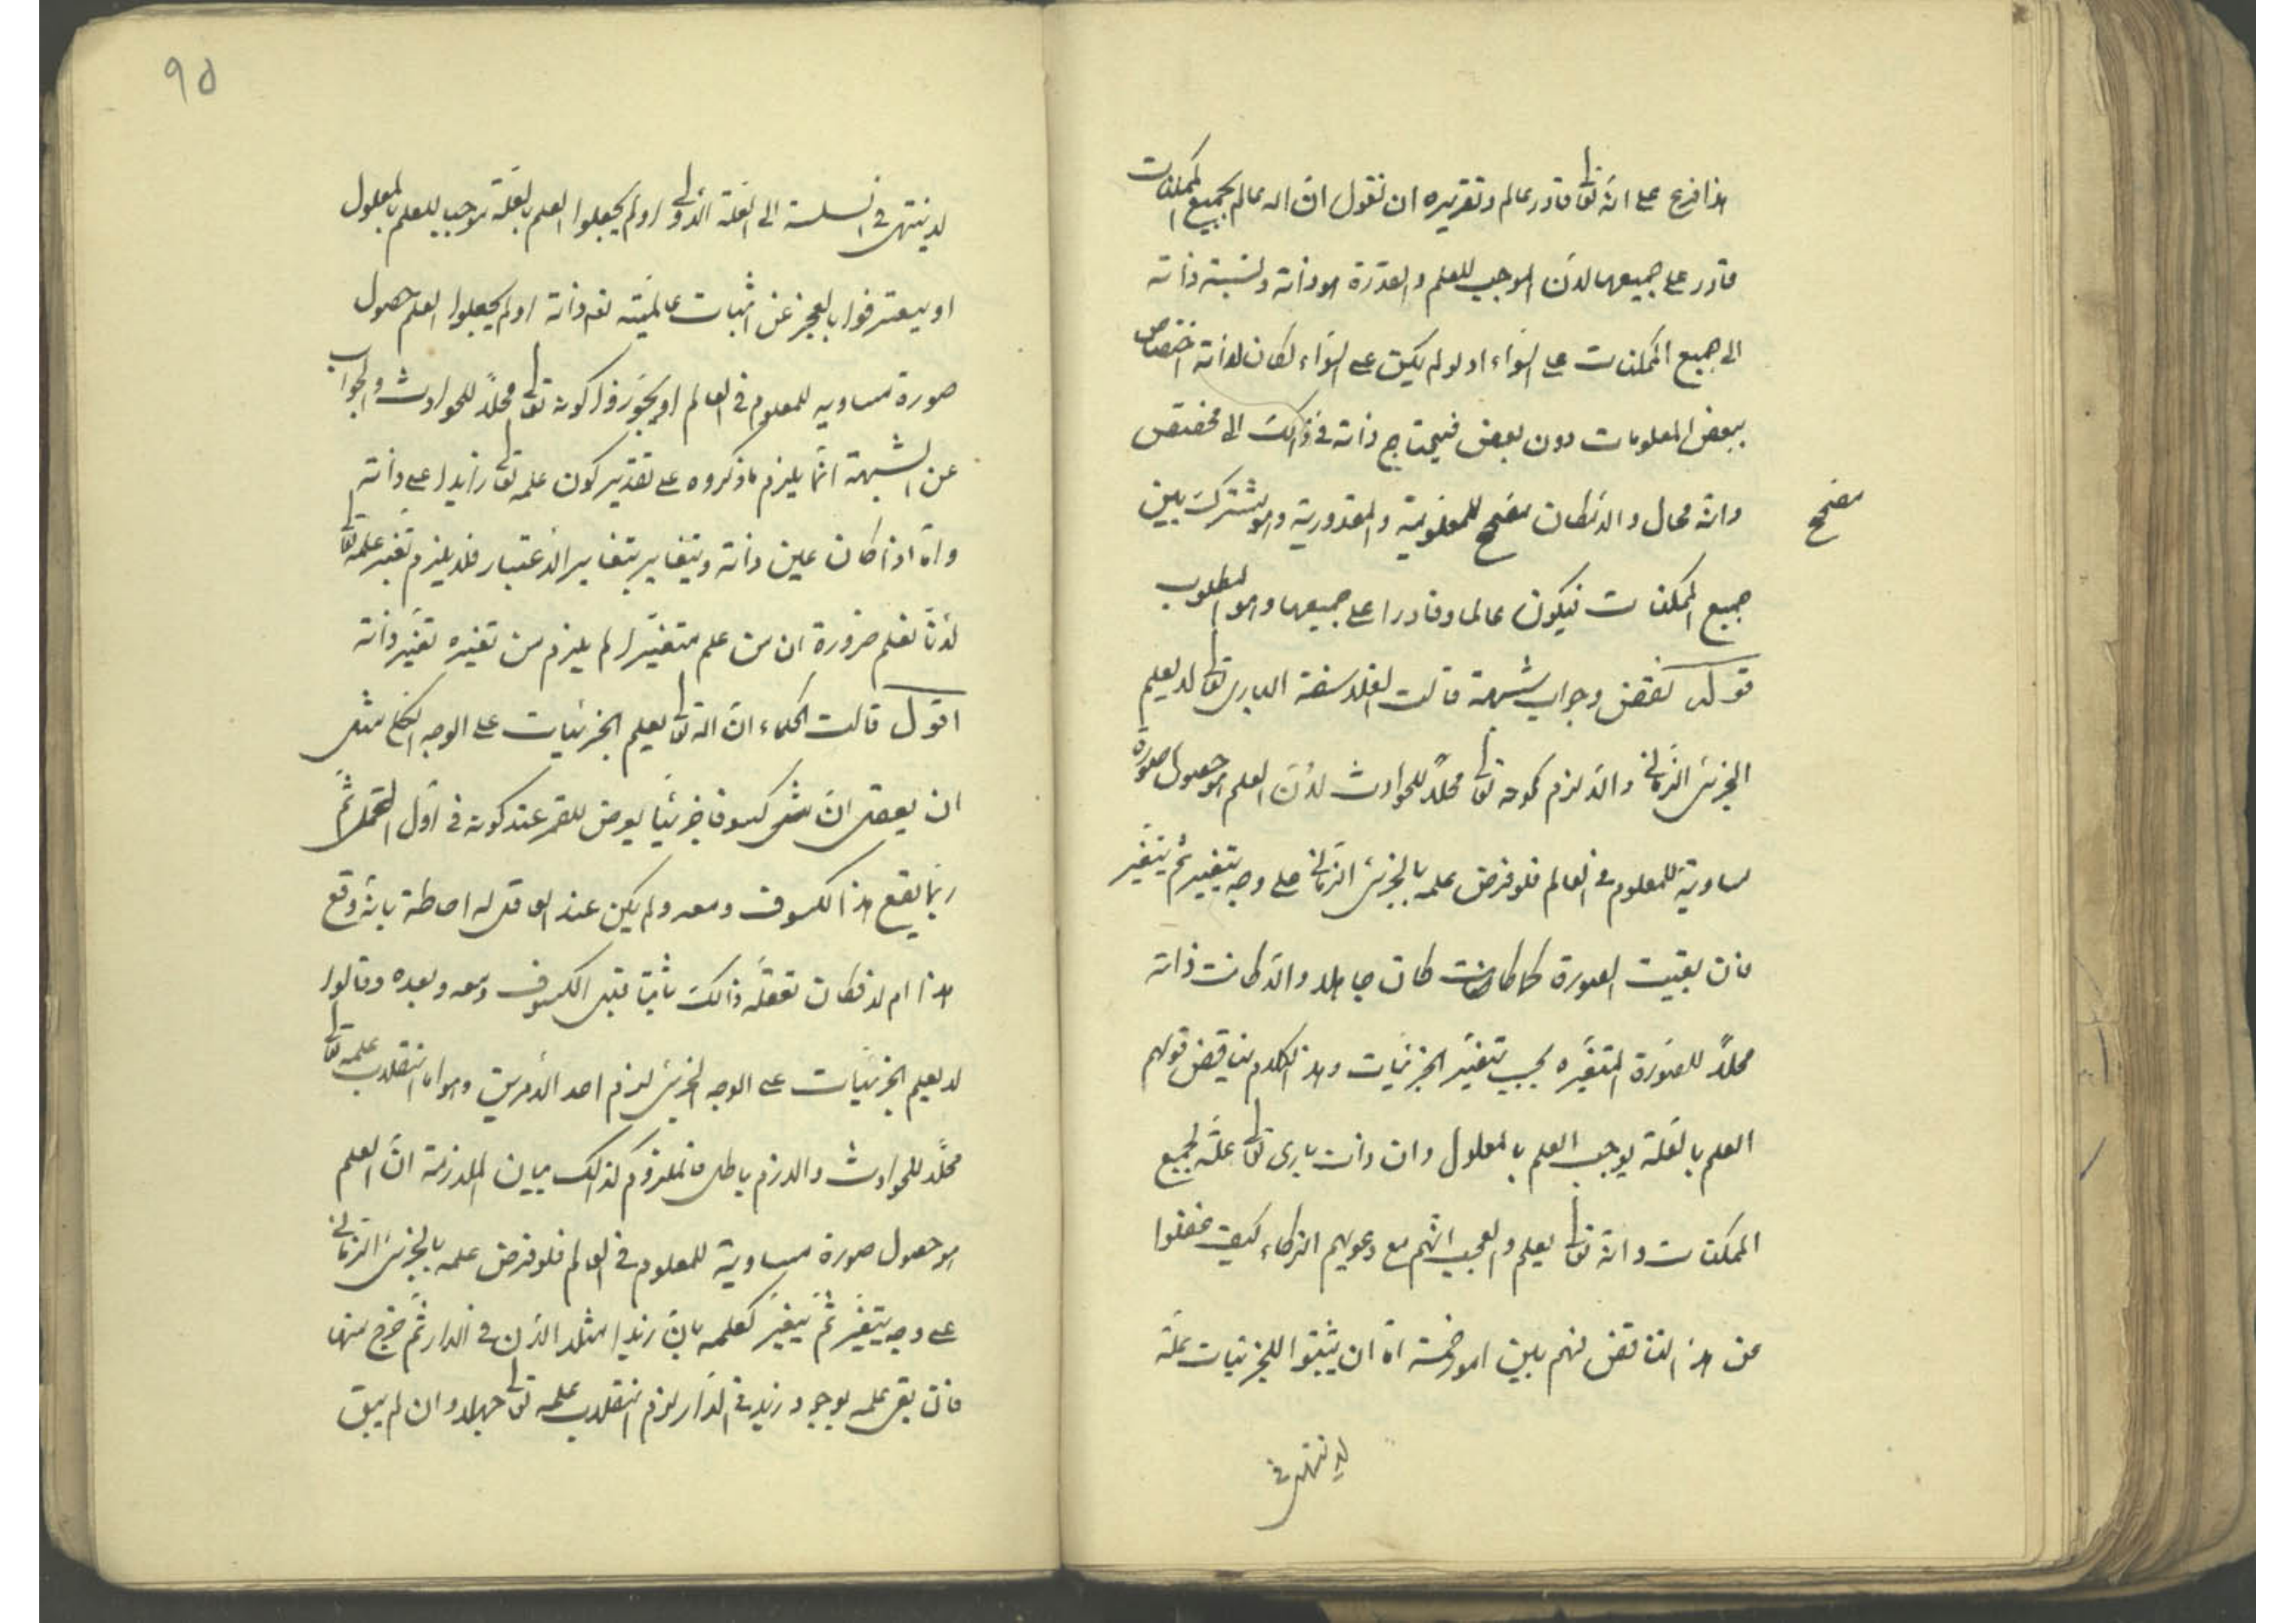 هذا فرع على انه تعا قادر عالم وتقريره ان نقول ان اله عالم بجميع الممكنات
قادر على جميعها لان الموجب للعلم والقدرة هو ذاته ونسبة ذاته
الى جميع الممكنات على السواء اذ لو لم يكن على السواء لكان لذاته اختصاص
ببعض المعلومات دون بعض فيحتاج ذاته في ذالك الى مخصص
وانه محال والامكان مصحح للمعلومية والمقدورية وهو مشترك بين
مصحح
جميع الممكنات فيكون عالما وقادرا على جميعها وهو المطلوب
قوله نقض وجواب شبهة قالت الفلاسفة البارى تعا لا يعلم
الجزئى الزمانى والا لزم كونه تعا محلا للحوادث لان العلم هو حصول صورة
مساوية للمعلوم فى العالم فلو فرض علمه بالجزئى الزمانى على وجه يتغير ثم يتغير
فان بقيت الصورة كما كانت كان جاهلا والا كانت ذاته
محلا للصورة المتغيره بحسب تغير الجزئيات وهذا الكلام يناقض قولهم
العلم بالعلة يوجب العلم بالمعلول وان ذات بارى تعا علة لجميع
الممكنات وانه تعا يعلم والعجب انهم مع دعويهم الذكاء كيف غفلوا
عن هذا التناقض فهم بين امور خمسة اما ان يثبتوا للجزئيات علة
لا ينتهى فى
٩٥
لا ينتهى فى السلسة الى العلة الاولى او لم يجعلوا العلم بالعلة موجبا للعلم بالمعلول
او يعترفوا بالعجز عن اثبات عالميته لذاته او لم يجعلوا العلم حصول
صورة مساويه للمعلوم فى العالم او يجوزوا كونه تعا محلا للحوادث والجواب
عن الشبهة انما يلزم ما ذكروه على تقدير كون علمه تعا زايدا على ذاته
واما اذا كان عين ذاته ويتغاير بتغاير الاعتبار فلا يلزم تغير علمه تعا
لانا نعلم ضرورة ان من علم متغيرا لم يلزم من تغيره تغير ذاته
اقول قالت الحكماء ان اله تعا يعلم الجزئيات على الوجه الكلى مثل
ان يعقل ان مثل كسوفا جزئيا يعرض للقمر عند كونه فى اول الحمل ثم
ربما يقع هذا الكسوف ومعه ولم يكن عند العاقل له احاطة بانه وقع
هذا ام لا فكان تعقله ذالك ثابتا قبل الكسوف ومعه وبعده وقالوا
لا يعلم الجزئيات على الوجه الجزئى لزم احد الامرين وهو اما انقلاب علمه تعا
محلا للحوادث واللازم باطل فالملزوم كذالك بيان الملازمة ان العلم
هو حصول صورة مساوية للمعلوم فى العالم فلو فرض علمه بالجزئى الزمانى
على وجه يتغير ثم يتغير كعلمه بان زيدا مثلا الان فى الدار ثم خرج منها
فان بقى علمه بوجود زيد فى الدار لزم انقلاب علمه تعا جهلا وان لم يبق